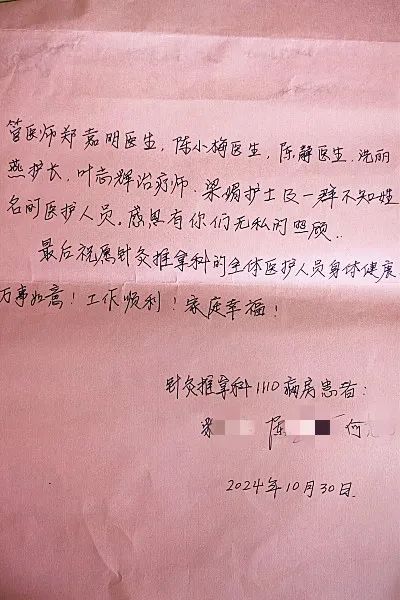 管医师郑嘉明医生,陈小梅医生,陈静医生.冼丽
燕护长,叶志辉治疗师.梁娟护士及一群不知姓
名的医护人员.感恩有你们无私的照顾..
最后祝愿针灸推拿科的全体医护人员身体健康
万事如意!工作顺利!家庭幸福!
针灸推拿科1110病房患者:
陈 何
2024年10月30日.